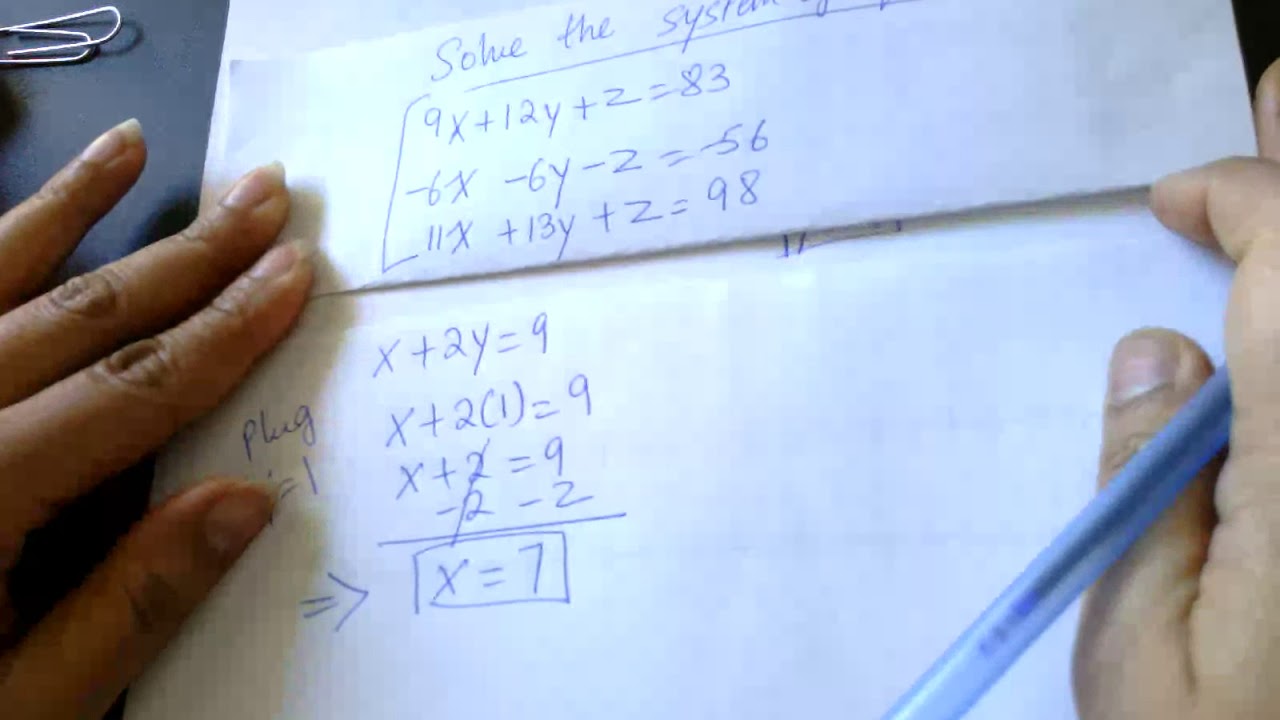 Solve the system
9x+12y+z=83
-6x -6y-z=-56
11x +13y+z=98
x+2y=9
x+2(1)=9
plug
x+2=9
=1
-2 -2
=> x=7